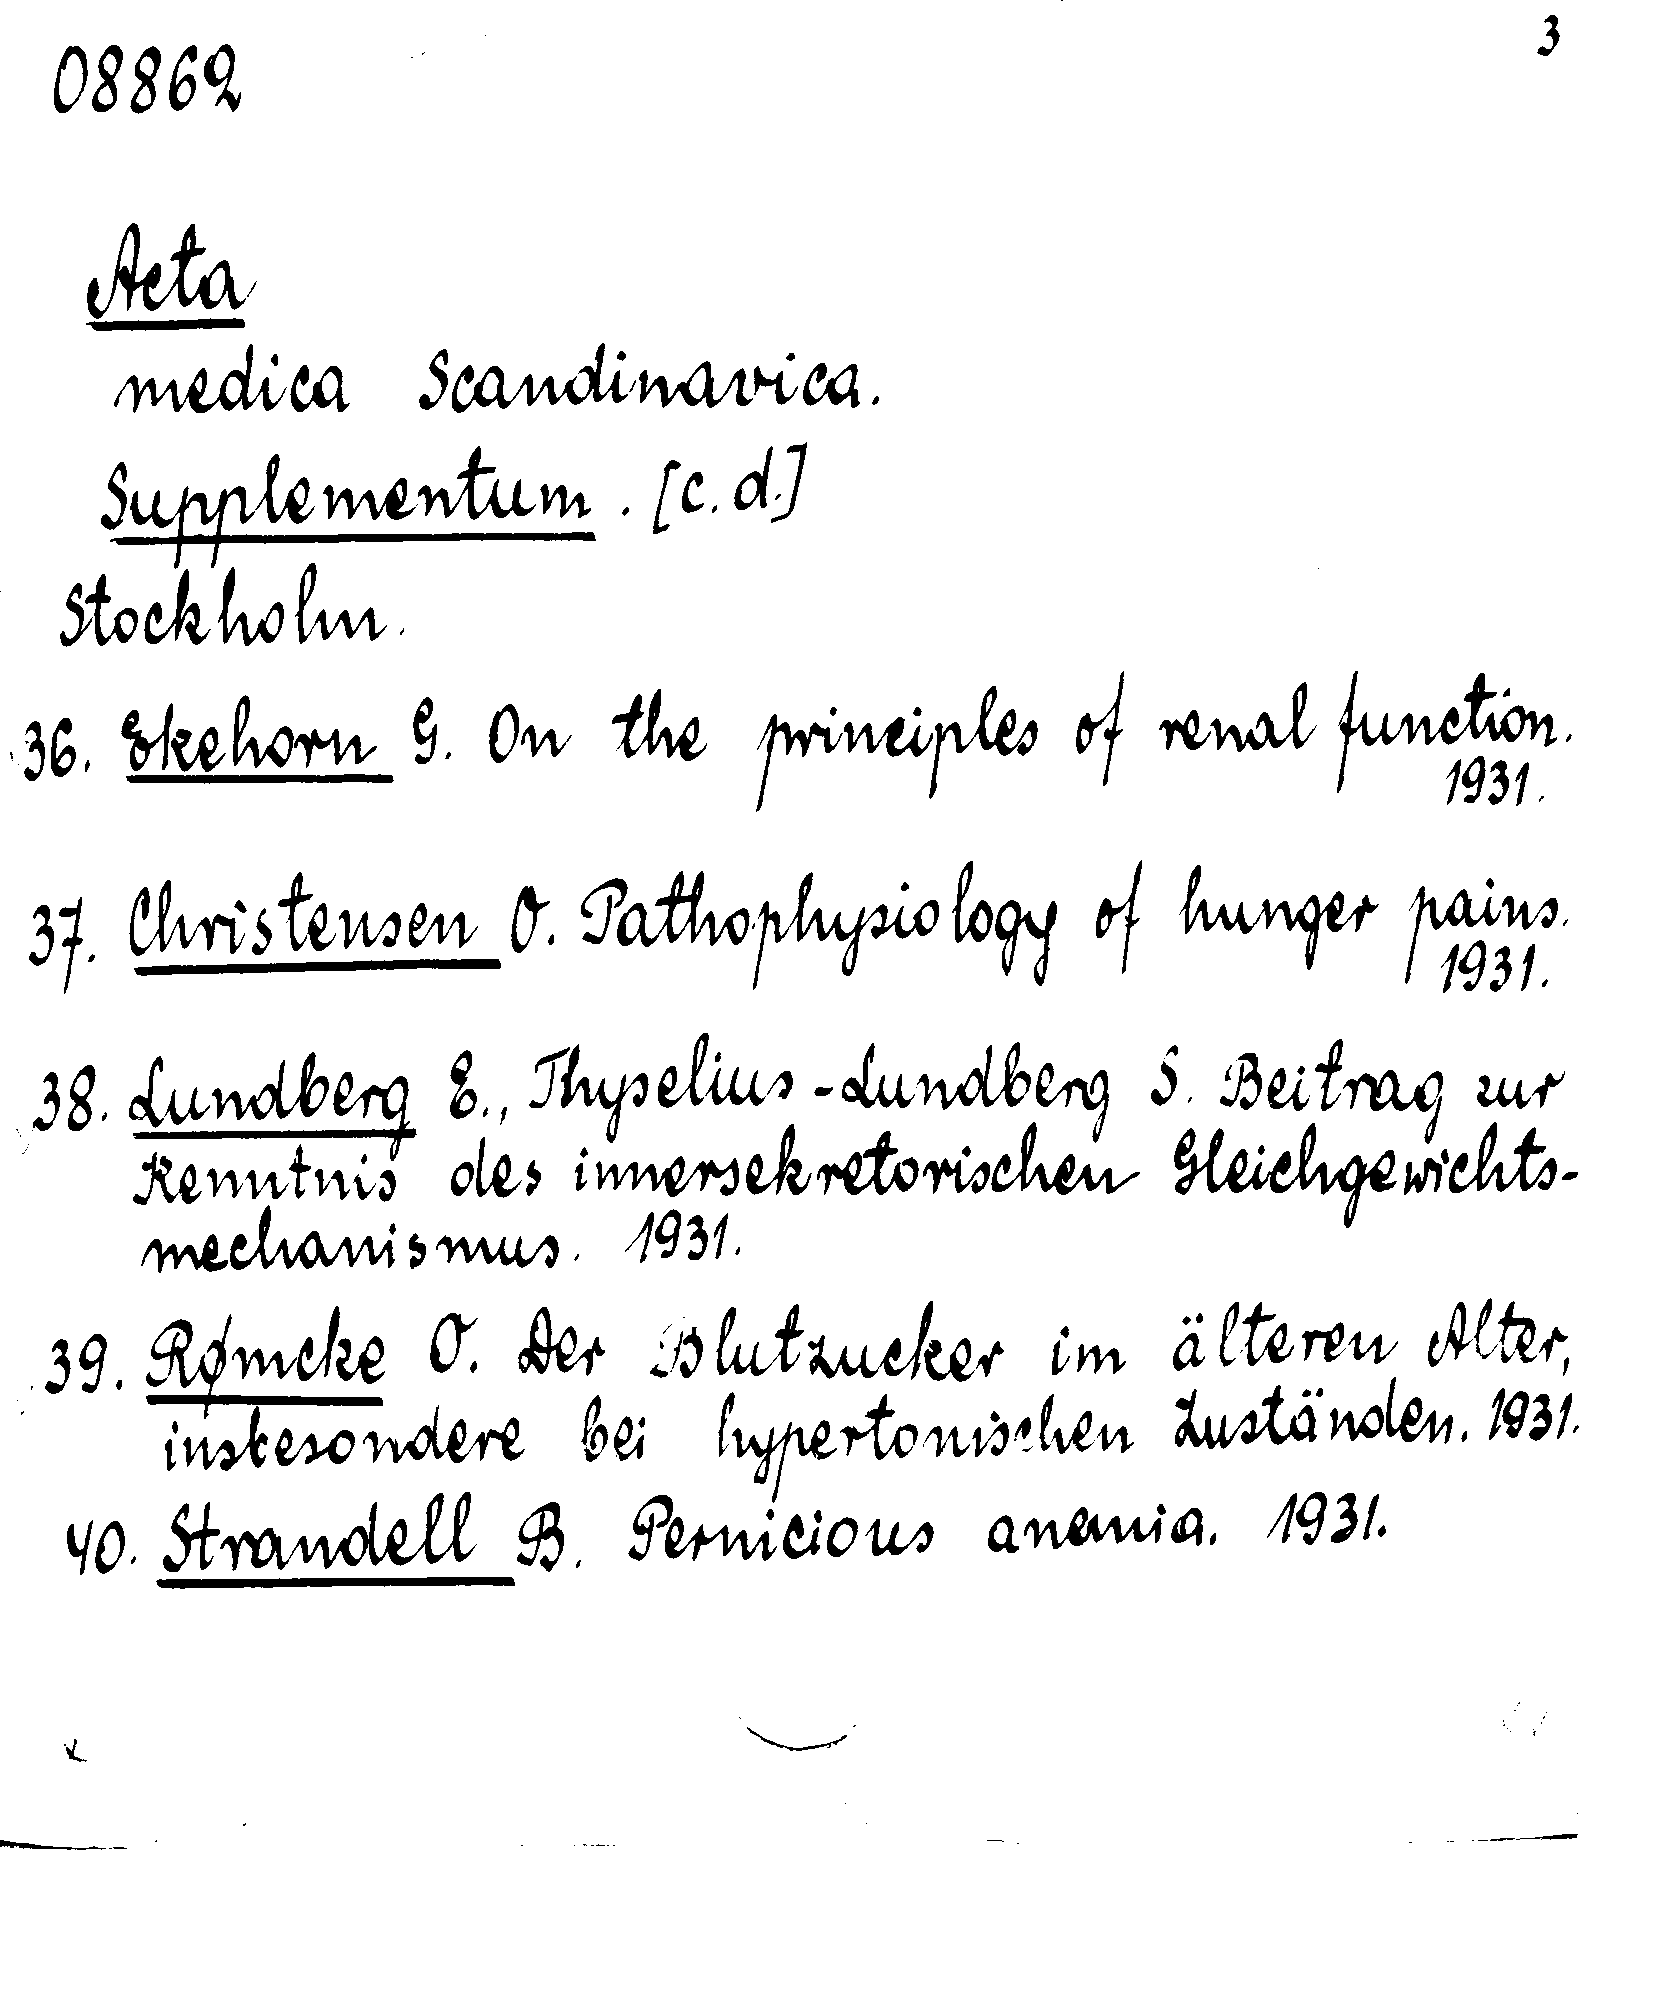 3
08862
Acta
medica Scandinavica.
Supplementum. [c.d.]
Stockholm.
36. Ekehorn G. On the principles of renal function.
1931.
37. Christensen O. Pathophysiology of hunger pains.
1931.
38. Lundberg E., Thyselius-Lundberg S. Beitrag zur
Kenntnis des innersekretorischen Gleichgewichts-
mechanismus. 1931.
39. Rømcke O. Der Blutzucker im älteren Alter,
insbesondere bei hypertonischen Zuständen. 1931.
40. Strandell B. Pernicious anemia. 1931.